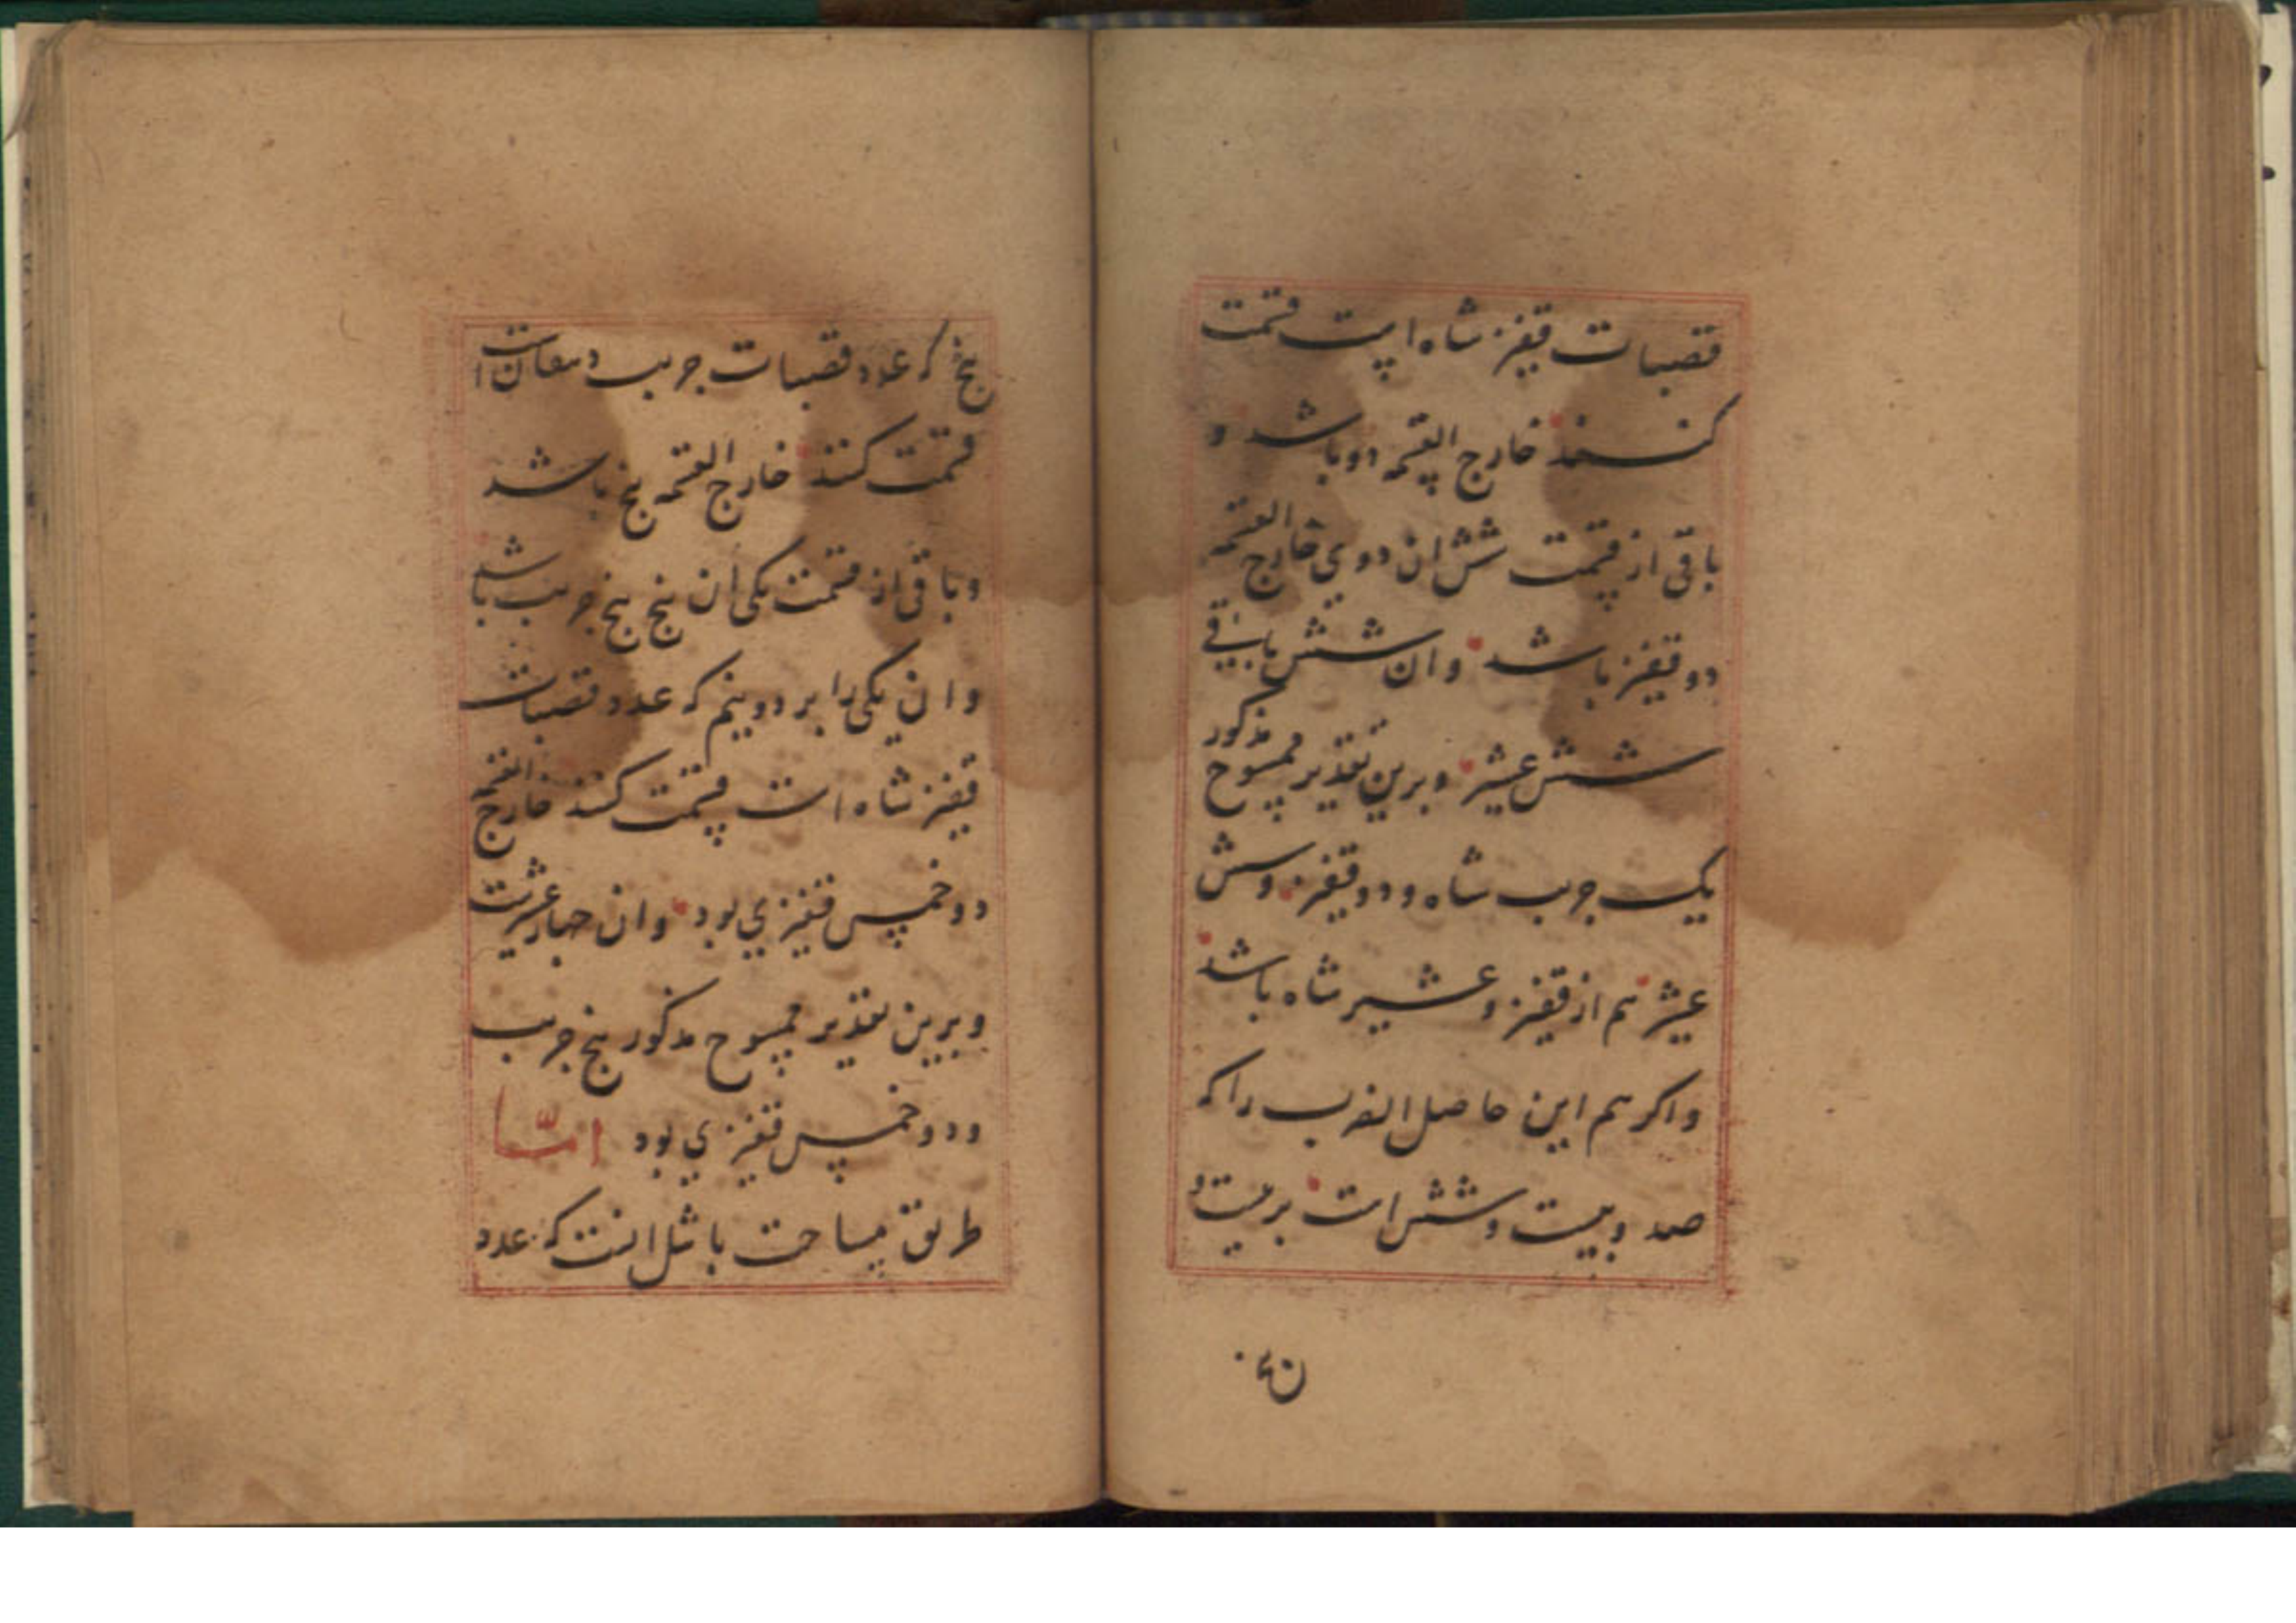 قصبات قفیز شاه است قسمت
کنند خارج القسمه دو باشد و
باقی از قسمت شش ان دو ی خارج القسمه
دو قفیز باشد وان شش باقی
شش عشیر وبرین تقدیر ممسوح مذکور
یک جریب شاه و دو قفیز وشش
عشیر هم از قفیز و عشیر شاه باشد
واکر هم این حاصل الضرب را که
صد وبیست وشش است بر بیست و
پنج که عدد قصبات جریب دهقان است
قسمت کنند خارج القسمه پنج باشد
وباقی از قسمت یکی ان پنج پنج جریب باشد
وان یکی را بر دو نیم که عدد قصبات
قفیز شاه است قسمت کنند خارج القسمه
دو خمس قفیزی بود وان چهار عشرست
وبرین تقدیر ممسوح مذکور پنج جریب
ودو خمس قفیزی بود امّا
طریق مساحت باشل انست که عدد